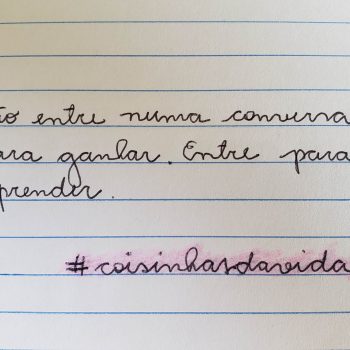 ão entre numa conversa
ara ganhar. Entre para
prender.
#coisinhasdavida